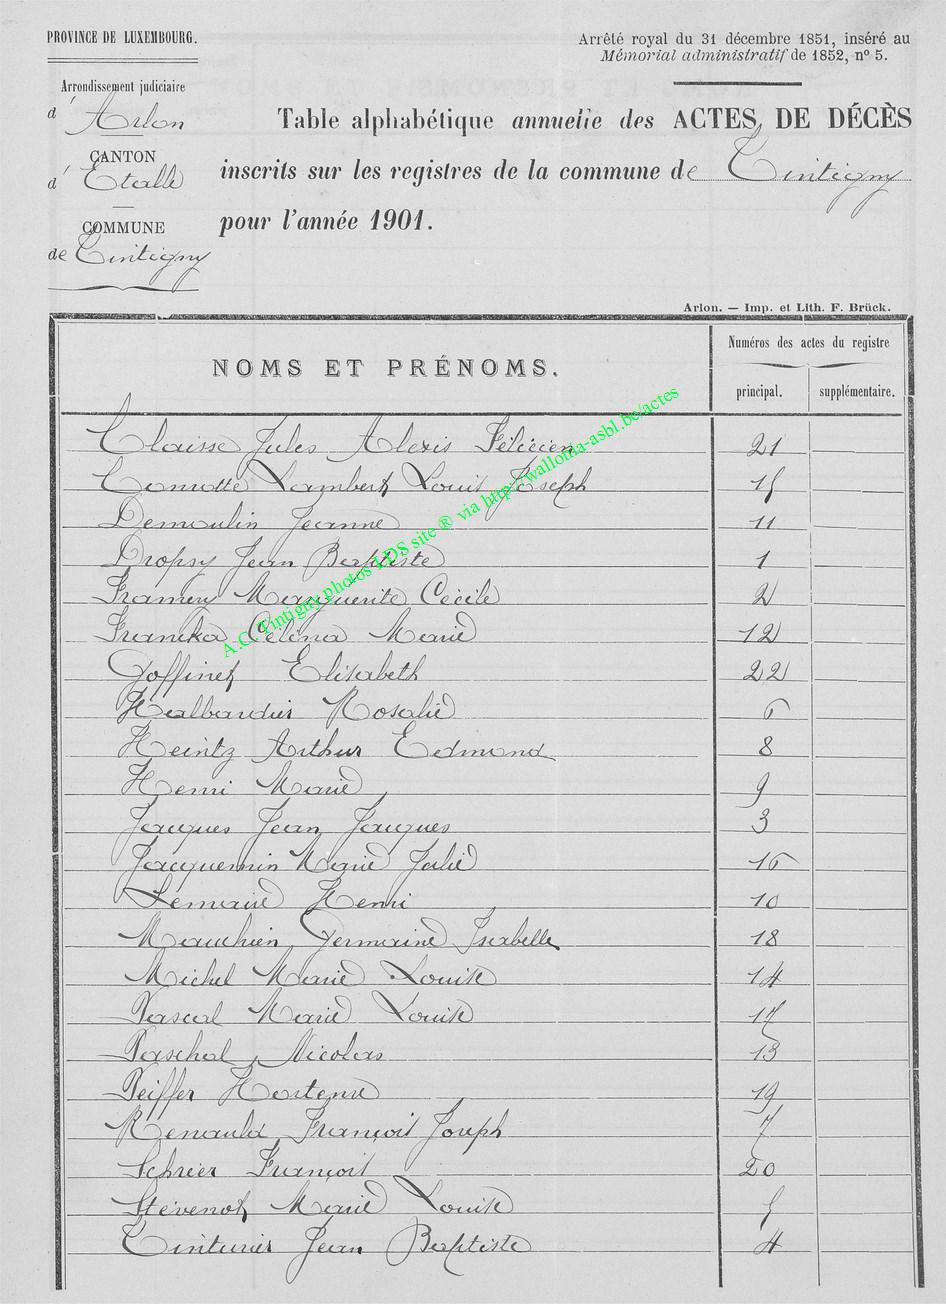 PROVINCE DE LUXEMBOURG.
Arrêté royal du 31 décembre 1851, inséré au
Mémorial administratif de 1852, nº 5.
Arrondissement judiciaire
d' Arlon
CANTON
d' Etalle
COMMUNE
de Tintigny
Table alphabétique annuelle des ACTES DE DÉCÈS
inscrits sur les registres de la commune de Tintigny
pour l'année 1901.
Arlon. — Imp. et Lith. F. Brück.
NOMS ET PRÉNOMS.
Numéros des actes du registre
principal.
supplémentaire.
Claisse Jules Alexis Félicien 21
Cornette Lambert Louis Joseph 15
Demoulin Jeanne 11
Dropsy Jean Baptiste 1
Framery Marguerite Cécile 2
Célina Marie 12
Goffinet Elisabeth 22
Halbardier Rosalie 6
Heintz Arthur Edmond 8
Henri Marie 9
Jacques Jean Jacques 3
Jacquemin Marie Julie 16
Lemaire Henri 10
Mauchien Germaine Isabelle 18
Michel Marie Louise 14
Pascal Marie Louise 17
Paschal Nicolas 13
Peiffer Hortense 19
Renauld François Joseph 7
Schreer François 20
Stévenot Marie Louise 5
Tinturier Jean Baptiste 4
A.C. Tintigny photos LDS site ® via http://wallonia-asbl.be/actes